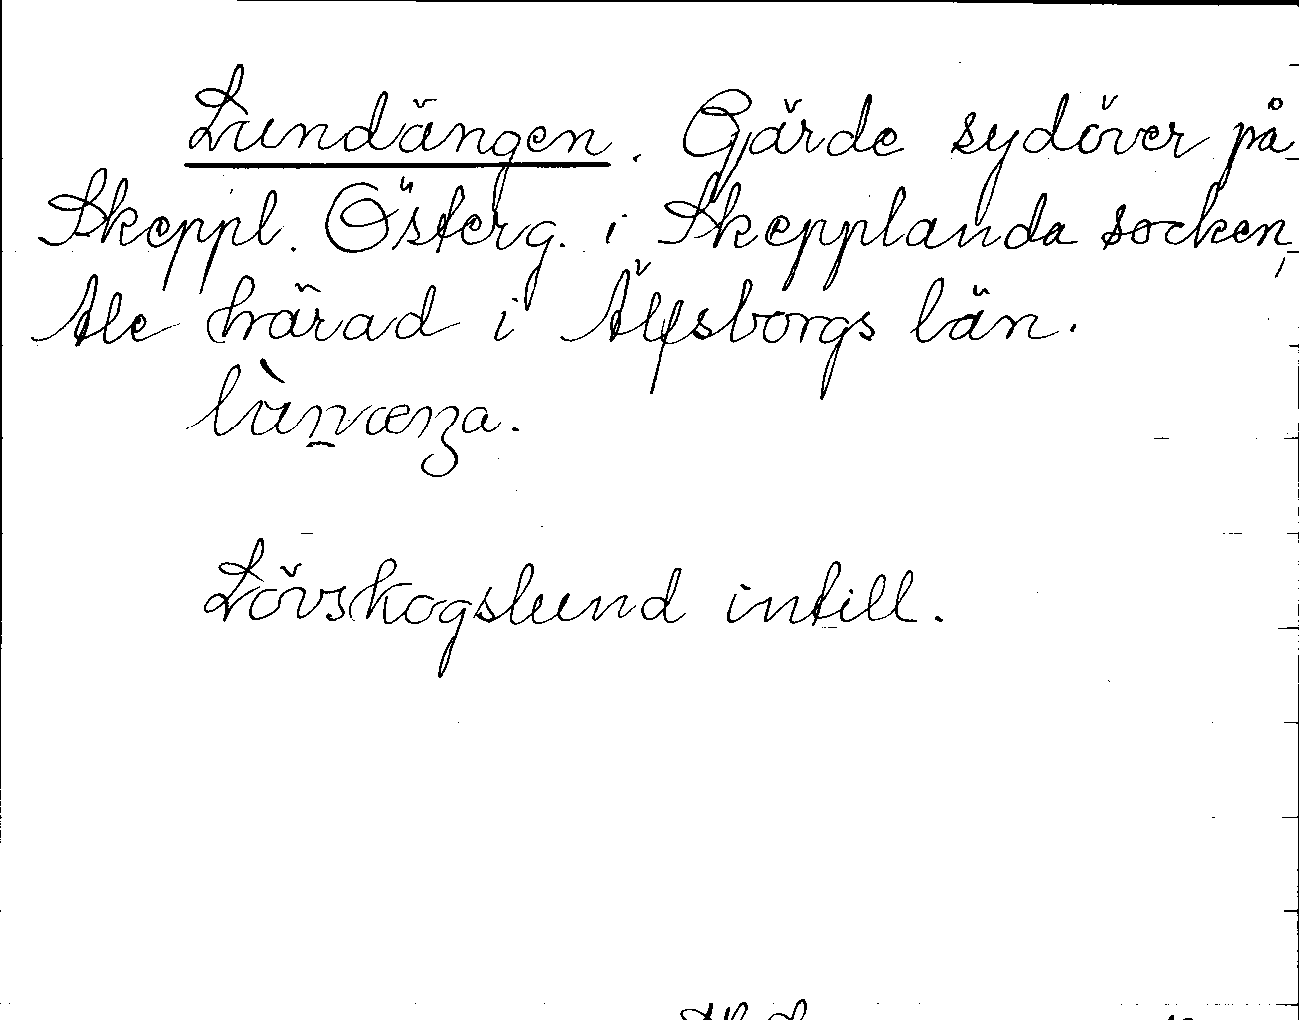 Lundängen. Gärde sydöver på
Skeppl. Österg. i Skepplanda socken,
Ale härad i Älfsborgs län.
Lövskogslund intill.